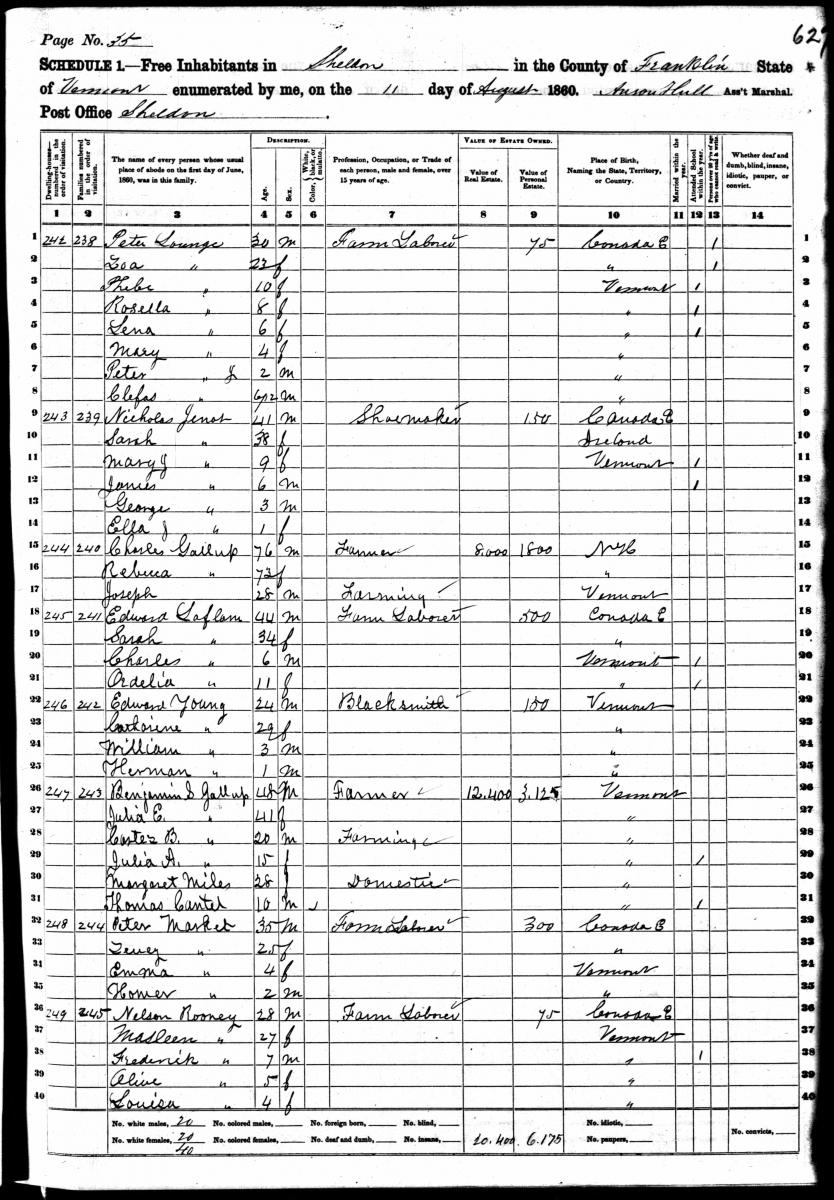 Page No. 35
627
SCHEDULE 1.—Free Inhabitants in Sheldon in the County of Franklin State
of Vermont enumerated by me, on the 11 day of August 1860. Anson Hull Ass't Marshal.
Post Office Sheldon
Dwelling-houses—numbered in the order of visitation. Families numbered in the order of visitation. The name of every person whose usual place of abode on the first day of June, 1860, was in this family. DESCRIPTION. Age. Sex. Color, White, black, or mulatto. Profession, Occupation, or Trade of each person, male and female, over 15 years of age. VALUE OF ESTATE OWNED. Value of Real Estate. Value of Personal Estate. Place of Birth, Naming the State, Territory, or Country. Married within the year. Attended School within the year. Persons over 20 y'rs of age who cannot read & write. Whether deaf and dumb, blind, insane, idiotic, pauper, or convict.
1 2 3 4 5 6 7 8 9 10 11 12 13 14
1 242 238 Peter Lounge 30 m Farm Laborer 75 Canada E 1 1
2 Zoa " 23 f " 1 2
3 Phebe " 10 f Vermont 1 3
4 Rosella " 8 f " 1 4
5 Lena " 6 f " 1 5
6 Mary " 4 f " 6
7 Peter " J 2 m " 7
8 Clefas " 6/12 m " 8
9 243 239 Nicholas Jenot 41 m Shoemaker 150 Canada E 9
10 Sarah " 38 f Ireland 10
11 Mary J " 9 f Vermont 1 11
12 James " 6 m " 1 12
13 George " 3 m 13
14 Ella J " 1 f 14
15 244 240 Charles Gallup 76 m Farmer 8.000 1800 NH 15
16 Rebecca " 73 f " 16
17 Joseph 28 m Farming Vermont 17
18 245 241 Edward Laflam 44 m Farm Laborer 500 Canada E 18
19 Sarah " 34 f " 19
20 Charles " 6 m Vermont 1 20
21 Ordelia " 11 f " 1 21
22 246 242 Edward Young 24 m Blacksmith 150 Vermont 22
23 Catharine " 29 f " 23
24 William " 3 m " 24
25 Herman " 1 m " 25
26 247 243 Benjamin S Gallup 48 m Farmer 12.400 3.125 Vermont 26
27 Julia E. " 41 f " 27
28 B. " 20 m Farming " 28
29 Julia A. " 15 f " 1 29
30 Margaret Miles 28 f Domestic " 30
31 Thomas Cantel 10 m " 1 31
32 248 244 Peter Market 35 m Farm Laborer 300 Canada E 32
33 " 25 f " 33
31 Emma " 4 f Vermont 34
35 Homer " 2 m " 35
36 249 245 Nelson Rooney 28 m Farm Laborer 75 Canada E 36
37 " 27 f Vermont 37
38 Frederick " 7 m " 1 38
39 Alive " 5 f " 39
40 Louisa " 4 f " 40
No. white males, 20 No. colored males, No. foreign born, No. blind, No. idiotic,
No. white females, 20 No. colored females, No. deaf and dumb, No. insane, 20.400 6.175 No. paupers, No. convicts,
40